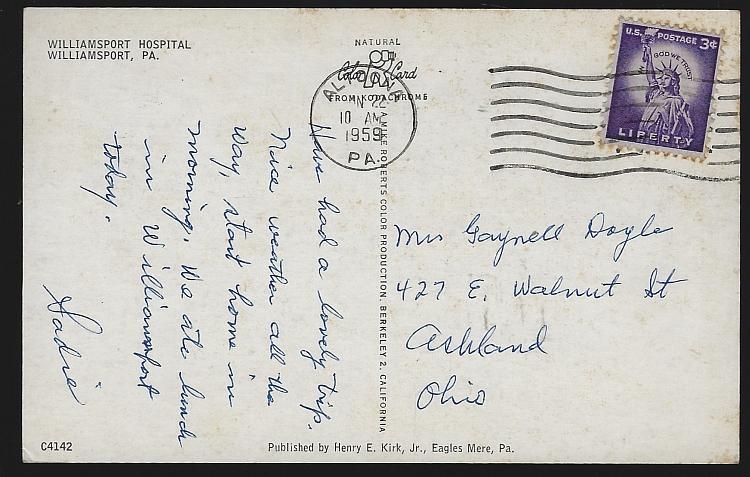 WILLIAMSPORT HOSPITAL
WILLIAMSPORT, PA.
NATURAL
Color Card
FROM KODACHROME
ALTOONA
22
10 AM
1959
PA.
U.S. POSTAGE 3¢
IN GOD WE TRUST
LIBERTY
Have had a lovely trip.
Nice weather all the
way, start home in
morning. We ate lunch
in Williamsport
today.
Sadie
A MIKE ROBERTS COLOR PRODUCTION, BERKELEY 2, CALIFORNIA
Mrs Gaynell Doyle
427 E. Walnut St
Ashland
Ohio
C4142
Published by Henry E. Kirk, Jr., Eagles Mere, Pa.